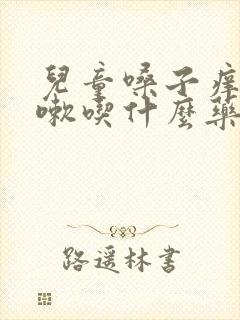 兒童嗓子痒
嗽喫什麽藥
路遥林書